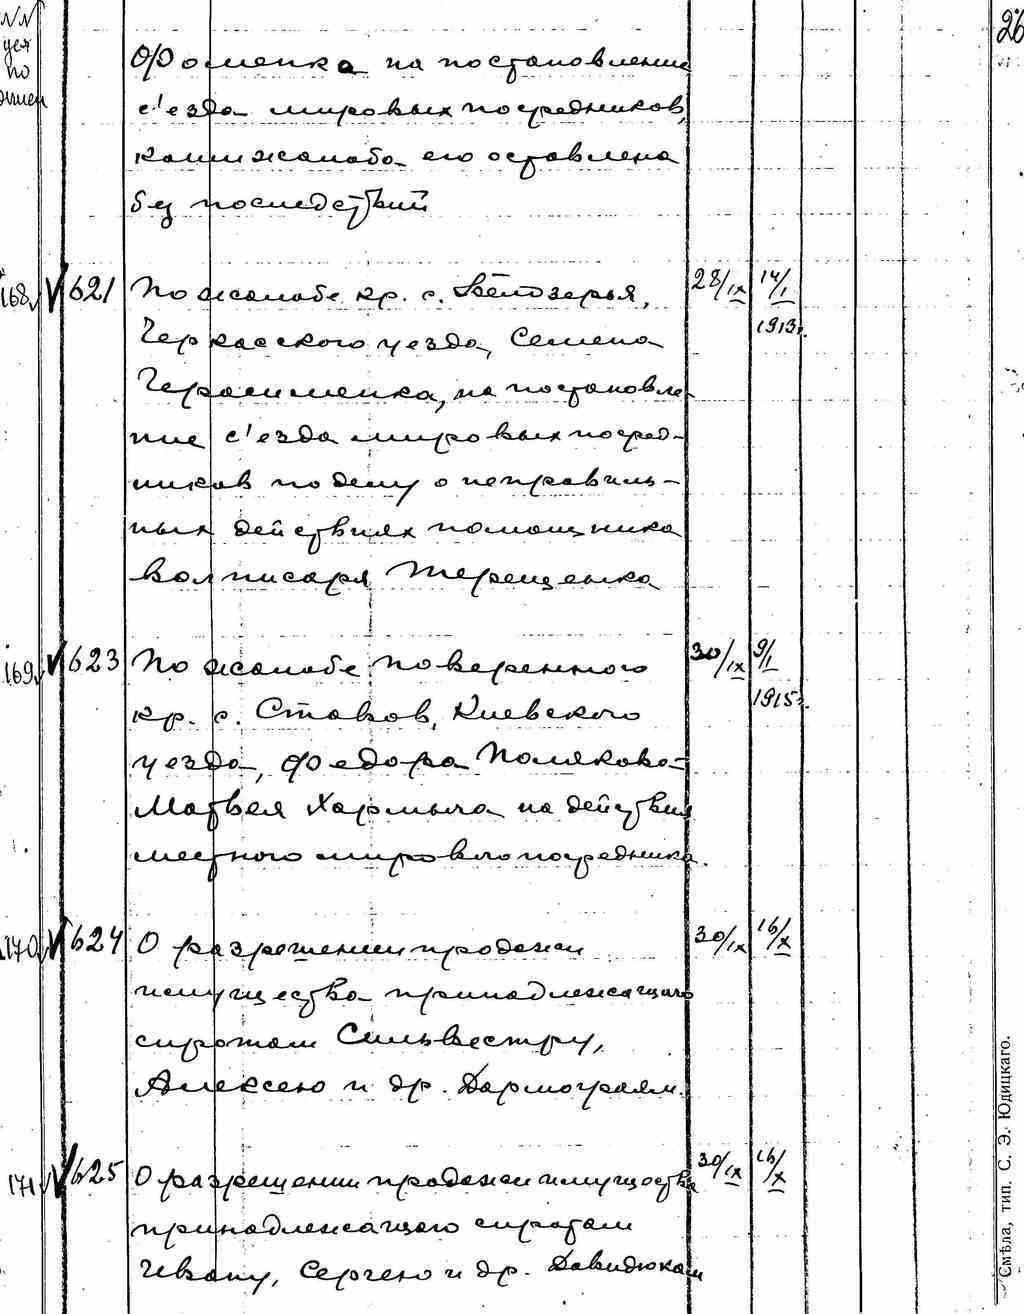 NN
по
26
Фоменка на постановление
с'езда мировых посредников,
коим жалоба его оставлена
без последствий
168 621 По жалобе кр. с. Белозерья, 28/IX 14/I
Черкасского уезда, Семена 1913г.
Герасименка, на постановле-
ние с'езда мировых посред-
ников по делу о неправиль-
ных действиях помощника
вол писаря Терещенка
169 623 По жалобе поверенного 30/IX 9/I
кр. с. Ставов, Киевского 1915г.
уезда, Федора Полякова-
Матвея Хармыча на действия
местного мирового посредника.
170 624 О разрешении продажи 30/IX 16/X
имущества принадлежащаго
сиротам Сильвестру,
Алексею и др. Дармограям.
171 625 О разрешении продажи имущества 30/IX 16/X
принадлежащаго сиротам
Ивану, Сергею и др. Давидюкам
Смѣла, тип. С. Э. Юдицкаго.